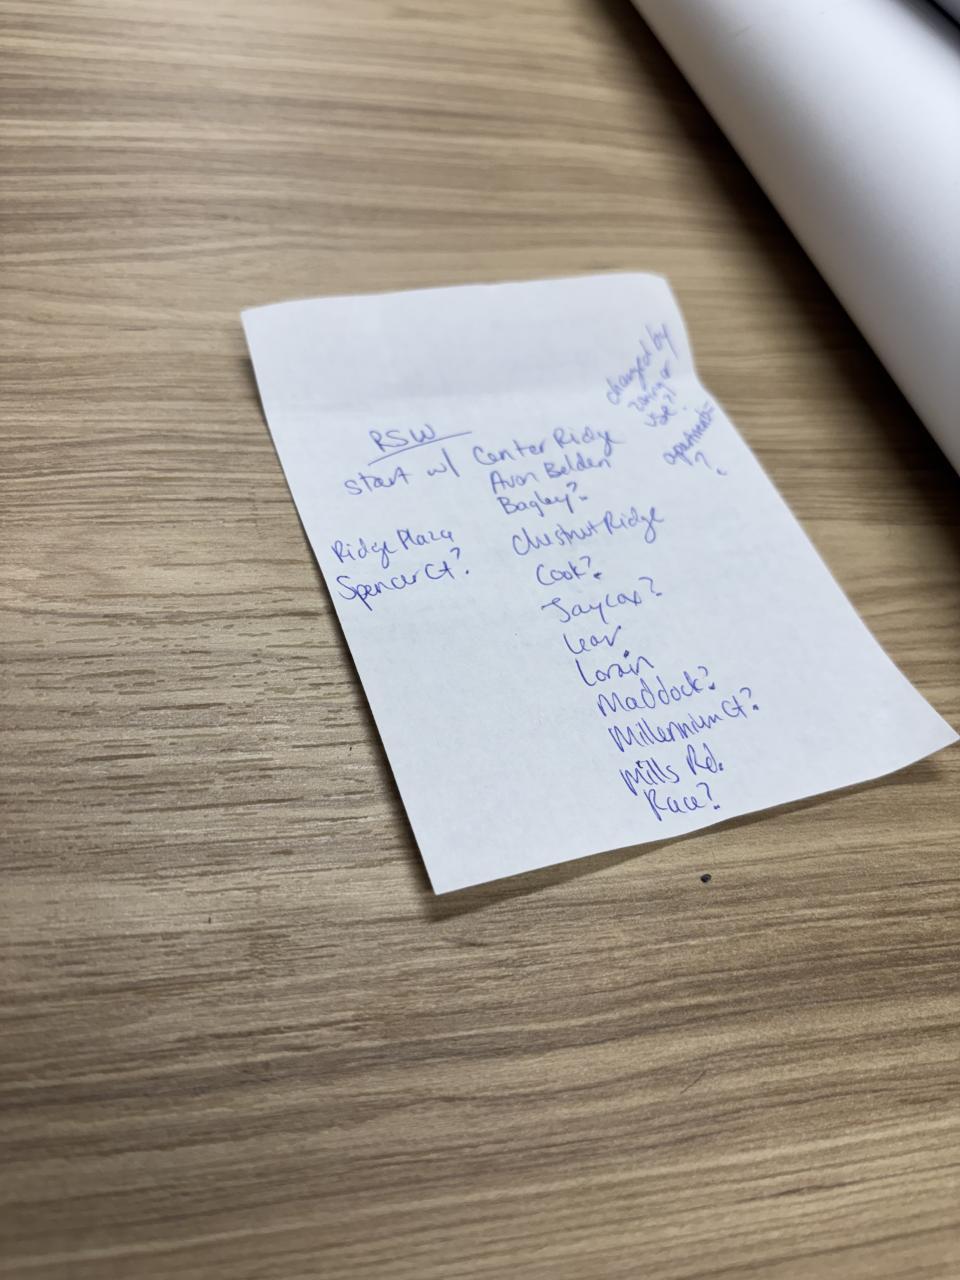 RSW
start w/ Center Ridge
Avon Belden
Bagley?
Chestnut Ridge
Cook?
Jaycox?
Lear
Lorain
Maddock?
Millennium Ct?
Mills Rd.
Race?
Ridge Plaza
Spencer Ct?
changed by
zoning or
use??
apartments
?